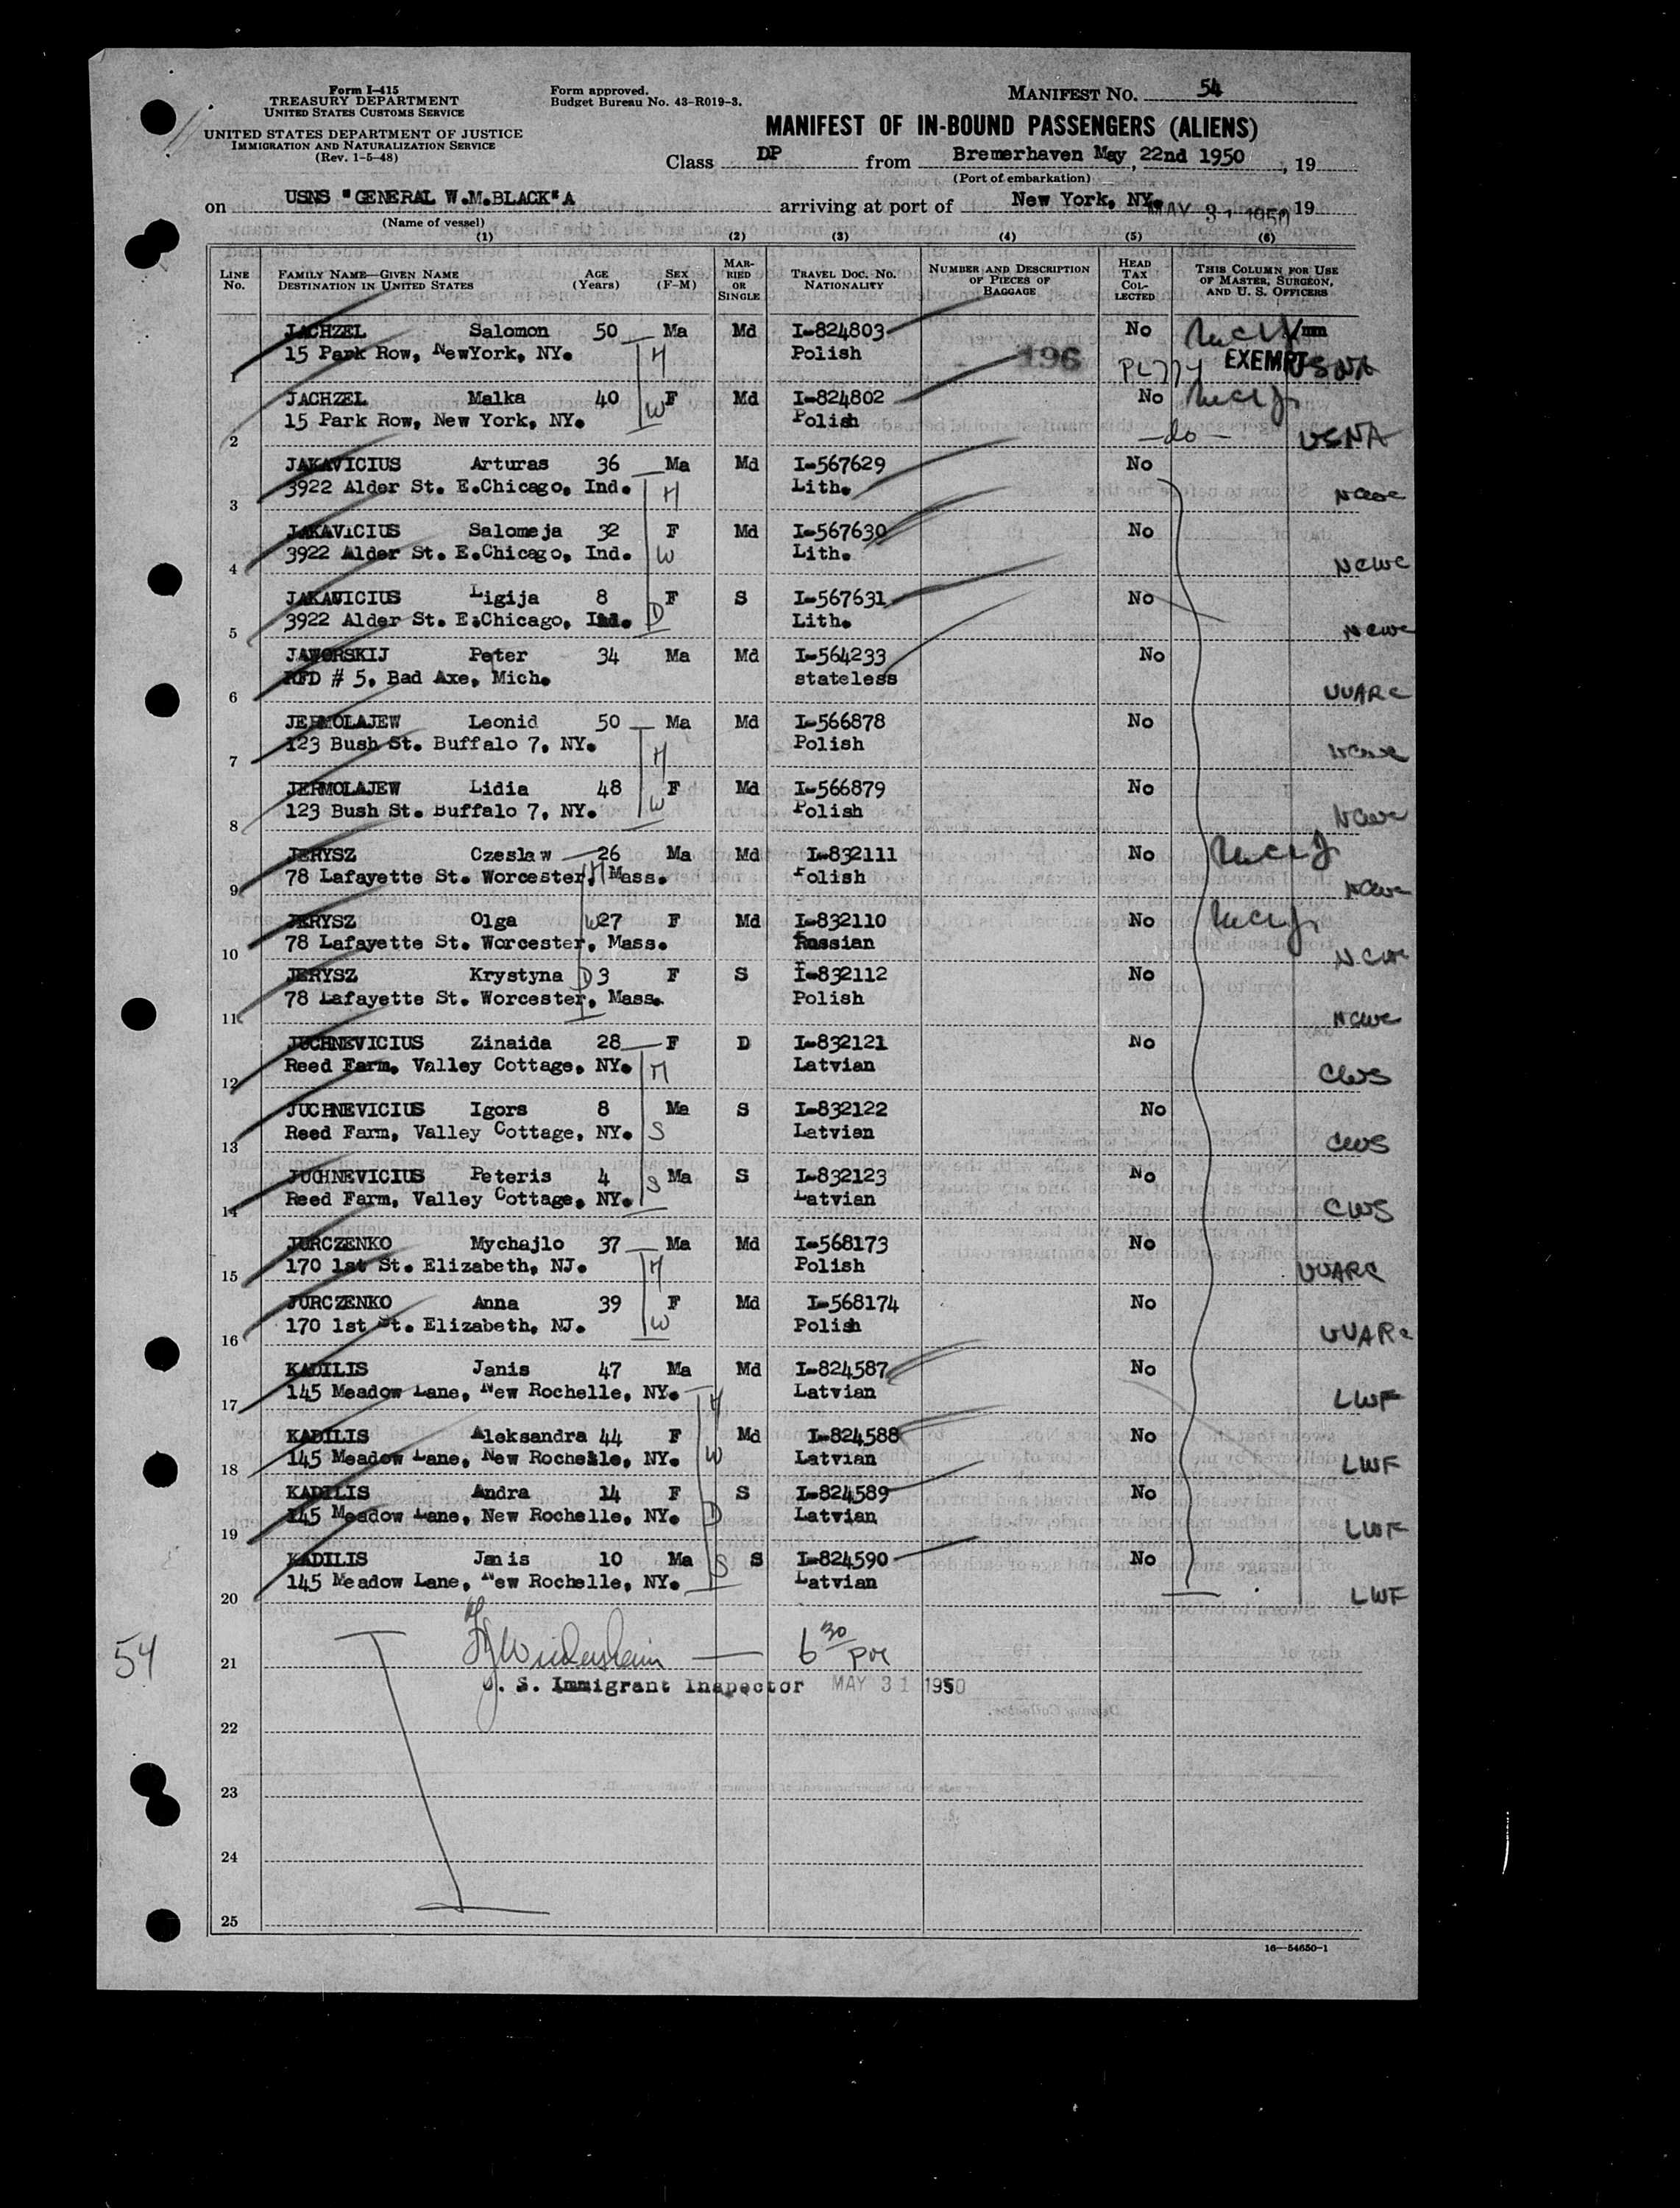 Form I-415
TREASURY DEPARTMENT
UNITED STATES CUSTOMS SERVICE
UNITED STATES DEPARTMENT OF JUSTICE
IMMIGRATION AND NATURALIZATION SERVICE
(Rev. 1-5-48)
Form approved.
Budget Bureau No. 43-R019-3.
MANIFEST NO. 54
MANIFEST OF IN-BOUND PASSENGERS (ALIENS)
Class DP from Bremerhaven May, 22nd 1950, 19
(Port of embarkation)
on USNS "GENERAL W.M.BLACK"A arriving at port of New York, NY. MAY 31 1950 19
(Name of vessel)
(1) (2) (3) (4) (5) (6)
LINE NO. FAMILY NAME—GIVEN NAME DESTINATION IN UNITED STATES AGE (Years) SEX (F-M) MARRIED OR SINGLE TRAVEL DOC. NO. NATIONALITY NUMBER AND DESCRIPTION OF PIECES OF BAGGAGE HEAD TAX COLLECTED THIS COLUMN FOR USE OF MASTER, SURGEON, AND U. S. OFFICERS
JACHZEL Salomon 50 Ma Md I-824803 No
1 15 Park Row, NewYork, NY. H Polish 196 PL774 EXEMPT USNA
JACHZEL Malka 40 F Md I-824802 No
2 15 Park Row, New York, NY. W Polish —do— USNA
JAKAVICIUS Arturas 36 Ma Md I-567629 No
3 3922 Alder St. E.Chicago, Ind. H Lith. NCWC
JAKAVICIUS Salomeja 32 F Md I-567630 No
4 3922 Alder St. E.Chicago, Ind. W Lith. NCWC
JAKAVICIUS Ligija 8 F S I-567631 No
5 3922 Alder St. E.Chicago, Ind. D Lith. NCWC
JAWORSKIJ Peter 34 Ma Md I-564233 No
6 RFD # 5, Bad Axe, Mich. stateless UUARC
JERMOLAJEW Leonid 50 Ma Md I-566878 No
7 123 Bush St. Buffalo 7, NY. H Polish NCWC
JERMOLAJEW Lidia 48 F Md I-566879 No
8 123 Bush St. Buffalo 7, NY. W Polish NCWC
JERYSZ Czeslaw 26 Ma Md I-832111 No
9 78 Lafayette St. Worcester, Mass. H Polish NCWC
JERYSZ Olga W 27 F Md I-832110 No
10 78 Lafayette St. Worcester, Mass. Russian NCWC
JERYSZ Krystyna D 3 F S I-832112 No
11 78 Lafayette St. Worcester, Mass. Polish NCWC
JUCHNEVICIUS Zinaida 28 F D I-832121 No
12 Reed Farm, Valley Cottage, NY. M Latvian CWS
JUCHNEVICIUS Igors 8 Ma S I-832122 No
13 Reed Farm, Valley Cottage, NY. S Latvian CWS
JUCHNEVICIUS Peteris 4 Ma S I-832123 No
14 Reed Farm, Valley Cottage, NY. S Latvian CWS
JURCZENKO Mychajlo 37 Ma Md I-568173 No
15 170 1st St. Elizabeth, NJ. H Polish UUARC
JURCZENKO Anna 39 F Md I-568174 No
16 170 1st St. Elizabeth, NJ. W Polish UUARC
KADILIS Janis 47 Ma Md I-824587 No
17 145 Meadow Lane, New Rochelle, NY. H Latvian LWF
KADILIS Aleksandra 44 F Md I-824588 No
18 145 Meadow Lane, New Rochelle, NY. W Latvian LWF
KADILIS Andra 14 F S I-824589 No
19 145 Meadow Lane, New Rochelle, NY. D Latvian LWF
KADILIS Janis 10 Ma S I-824590 No
20 145 Meadow Lane, New Rochelle, NY. S Latvian LWF
54
21 6 30
U. S. Immigrant Inspector MAY 31 1950
22
23
24
25
16—54650-1